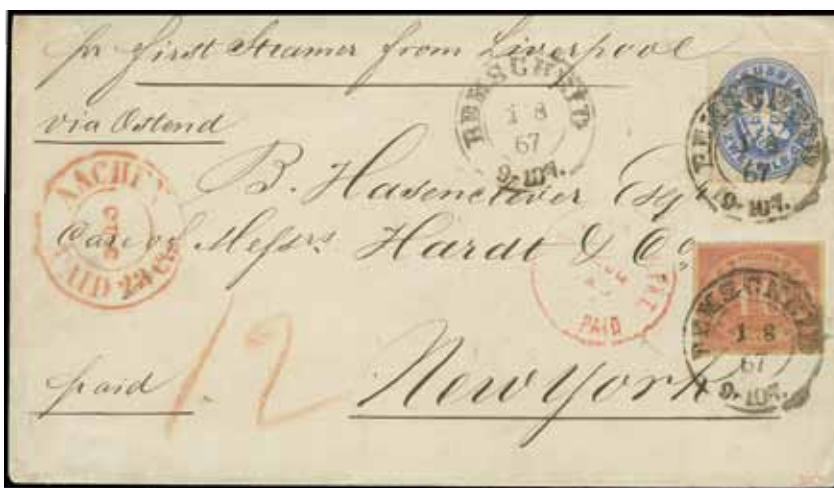 pr first Steamer from Liverpool
via Ostend
REMSCHEID
1 8
67
9-10 V.
REMSCHEID
1 8
67
9-10 V.
AACHEN
PAID 23 Cts
B. Hasenclever Esqr
Care of Messrs Hardt & Co
PAID
REMSCHEID
1 8
67
9-10 V.
12
paid
New York